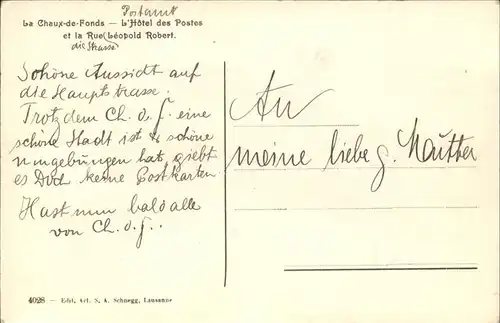 Postamt
La Chaux-de-Fonds — L'Hôtel des Postes
et la Rue (Léopold Robert.
die Strasse
Schöne Aussidt auf
die Hauptstrasse.
Trotzdem Ch. d. f. eine
schöne Stadt ist & schöne
umgebungen hat, giebt
es Doch keine Postkarten
Hast nun bald alle
von Ch. d. f..
An
meine liebe g. Mutter
4028 — Edit. Art. S. A. Schnegg, Lausanne